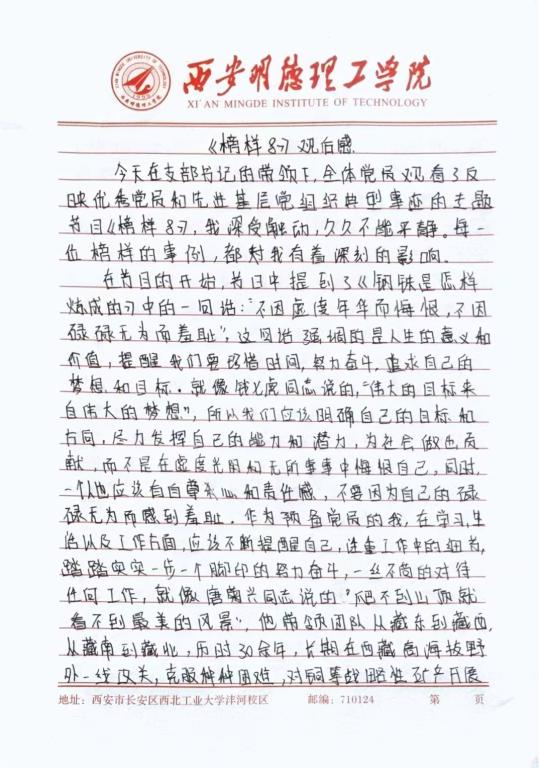 西安明德理工学院
XI'AN MINGDE INSTITUTE OF TECHNOLOGY
《榜样8》观后感
今天在支部书记的带领下,全体党员观看了反
映优秀党员和先进基层党组织典型事迹的专题
节目《榜样8》,我深受触动,久久不能平静。每一
位榜样的事例,都对我有着深刻的影响。
在节目的开始,节目中提到了《钢铁是怎样
炼成的》中的一句话:"不因虚度年华而悔恨,不因
碌碌无为而羞耻",这句话强调的是人生的意义和
价值,提醒我们要珍惜时间,努力奋斗,追求自己的
梦想和目标。就像钱七虎同志说的,"伟大的目标来
自伟大的梦想",所以我们应该明确自己的目标和
方向,尽力发挥自己的能力和潜力,为社会做出贡
献,而不是在虚度光阴和无所事事中悔恨自己,同时,
一个人也应该有自尊心和责任感,不要因为自己的碌
碌无为而感到羞耻。作为预备党员的我,在学习、生
活以及工作方面,应该不断提醒自己,注重工作中的细节,
踏踏实实一步一个脚印的努力奋斗,一丝不苟的对待
任何工作,就像唐菊兴同志说的"爬不到山顶就
看不到最美的风景",他带领团队从藏东到藏西,
从藏南到藏北,历时30余年,长期在西藏高海拔野
外一线攻关,克服种种困难,对铜等战略性矿产开展
地址:西安市长安区西北工业大学沣河校区 邮编:710124 第 页